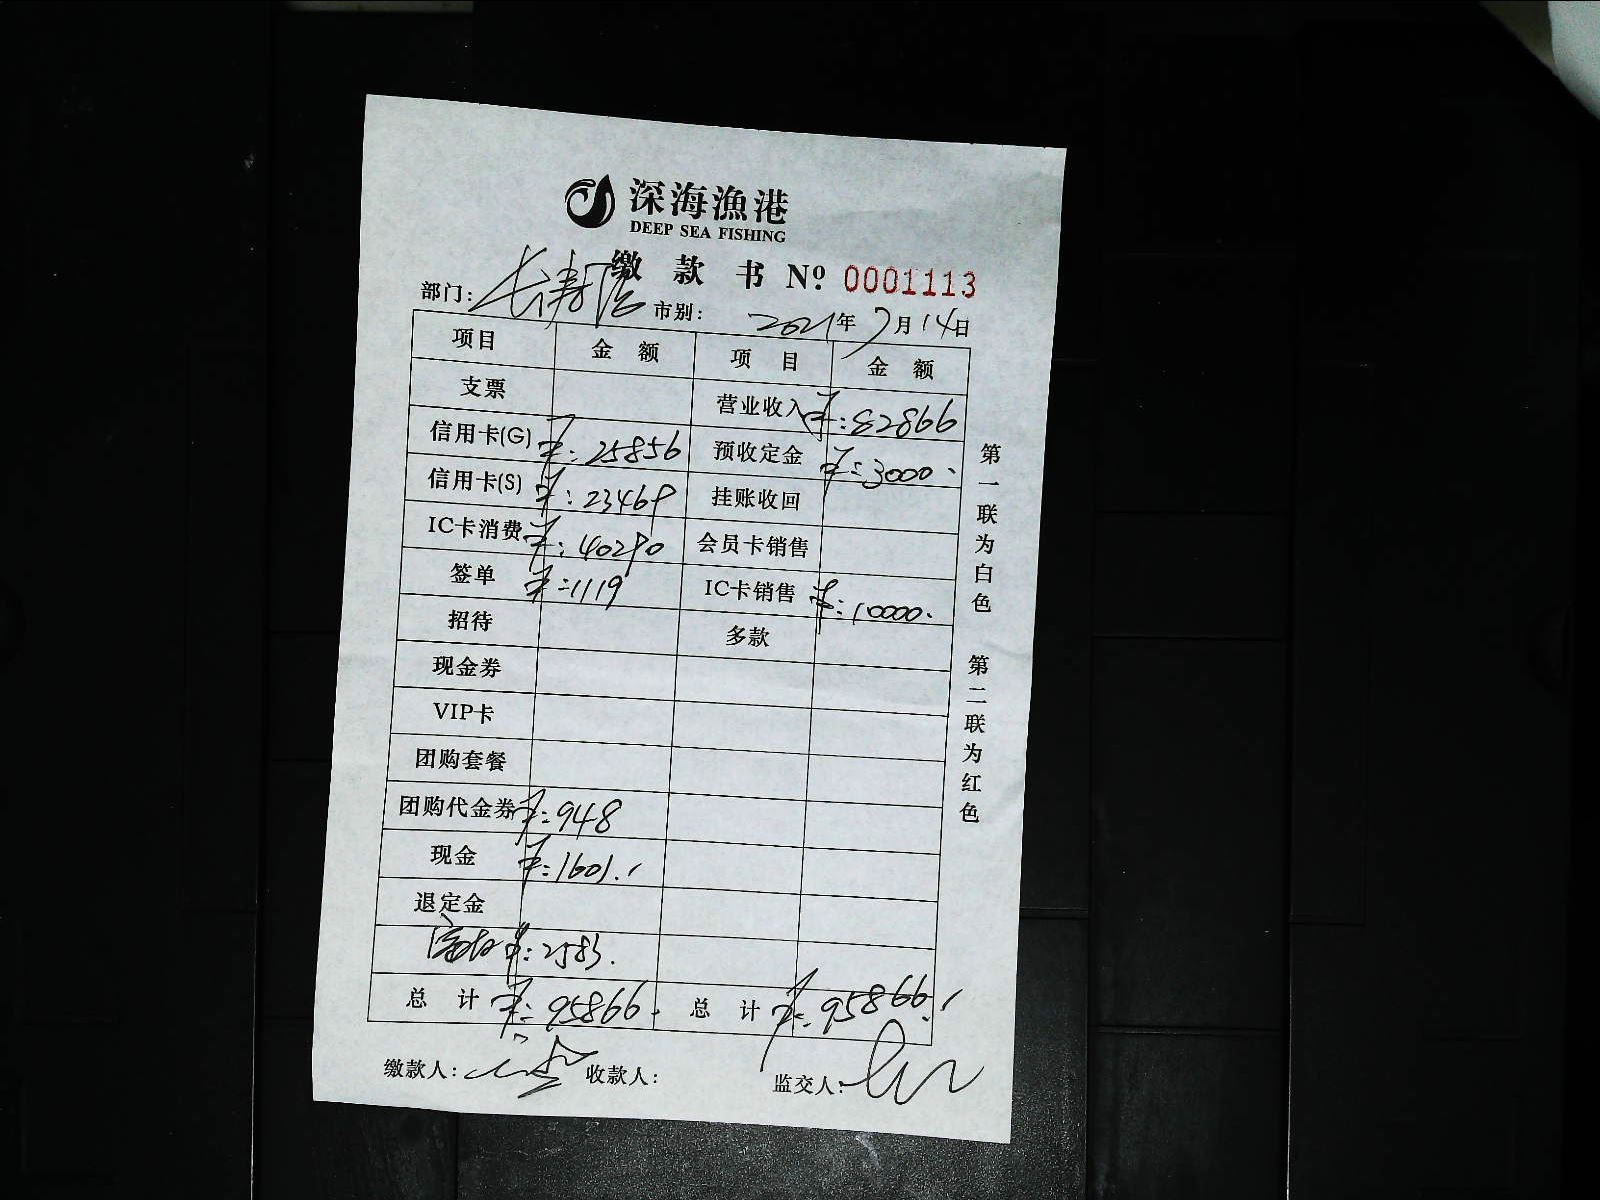 深海漁港
DEEP SEA FISHING
缴款书 Nº 0001113
部门: 长寿 市别: 2021年7月14日
项目 金额 项目 金额
支票 营业收入 ¥:82866
信用卡(G) ¥:25856 预收定金 ¥:3000.
信用卡(S) ¥:23469 挂账收回
IC卡消费 ¥:40290 会员卡销售
签单 ¥:1119 IC卡销售 ¥:10000.
招待 多款
现金券
VIP卡
团购套餐
团购代金券 ¥:948
现金 ¥:1601.
退定金
¥:2583.
总计 ¥:95866. 总计 ¥:95866.
缴款人: 收款人: 监交人:
第一联为白色 第二联为红色